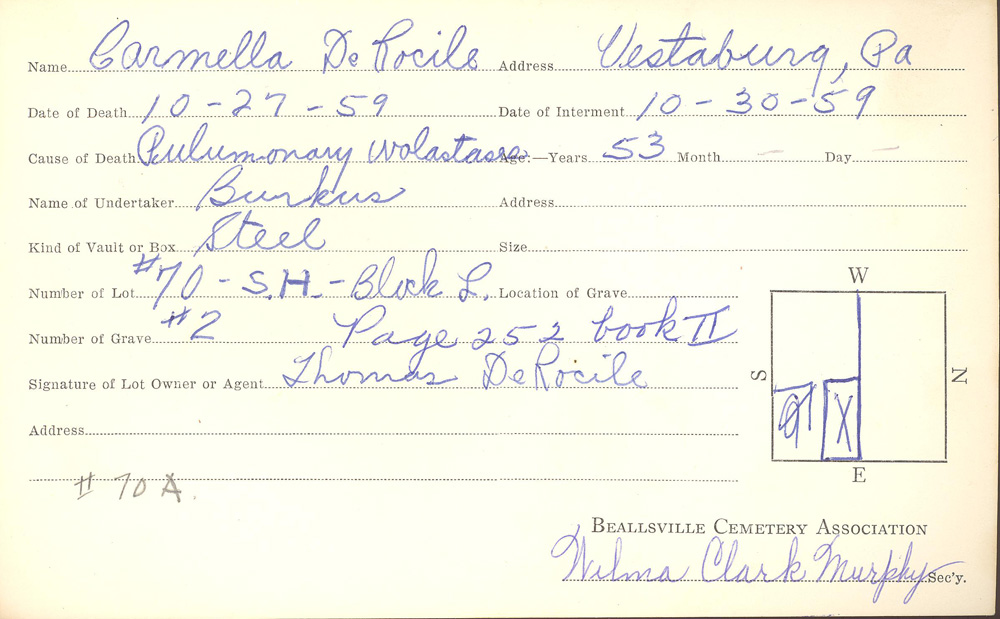 Name Carmella DeRocile Address Vestaburg, Pa
Date of Death 10-27-59 Date of Interment 10-30-59
Cause of Death Pulumonary Age—Years 53 Month — Day —
Name of Undertaker Burkus Address
Kind of Vault or Box Steel Size
Number of Lot #70-S.H.-Block L. Location of Grave
Number of Grave #2 Page 252 book II
Signature of Lot Owner or Agent Thomas DeRocile
Address
# 70 A.
W
S
N
X
E
BEALLSVILLE CEMETERY ASSOCIATION
Wilma Clark Murphy Sec'y.